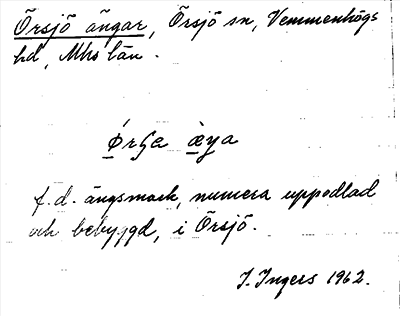 Örsjö ängar, Örsjö sn, Vemmenhögs
hd, Mhs län.
f.d. ängsmark, numera uppodlad
och bebyggd, i Örsjö.
I. Ingers 1962.